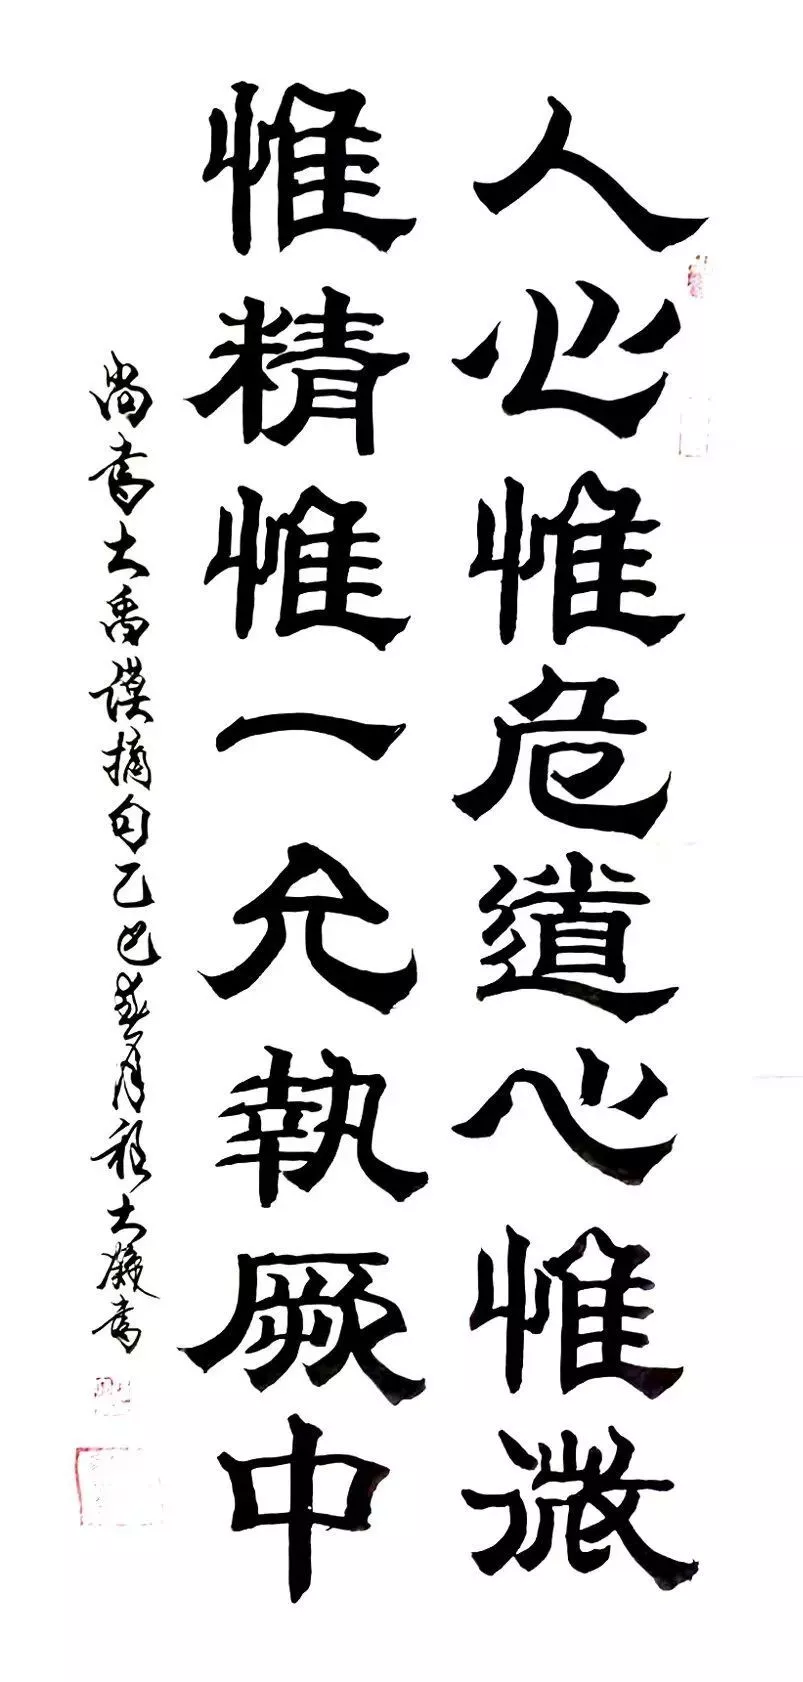 人心惟危道心惟微
惟精惟一允執厥中
尚書大禹謨摘句乙巳春月程大钺書